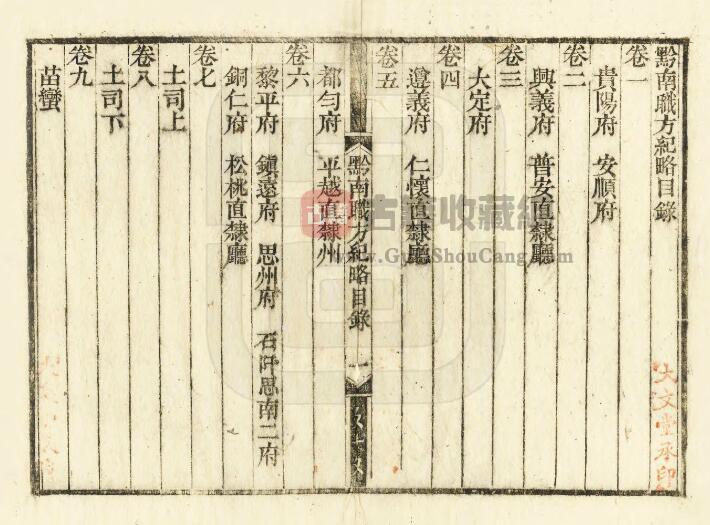 黔南職方紀略目錄
卷一
貴陽府 安順府
卷二
興義府 普安直隸廳
卷三
大定府
卷四
遵義府 仁懷直隸廳
卷五
黔南職方紀略目錄 一
都勻府 平越直隸州
卷六
黎平府 鎮遠府 思州府 石阡思南二府
銅仁府 松桃直隸廳
卷七
土司上
卷八
土司下
卷九
苗蠻
大文堂承印
古籍收藏
www.GujiShouCang.com